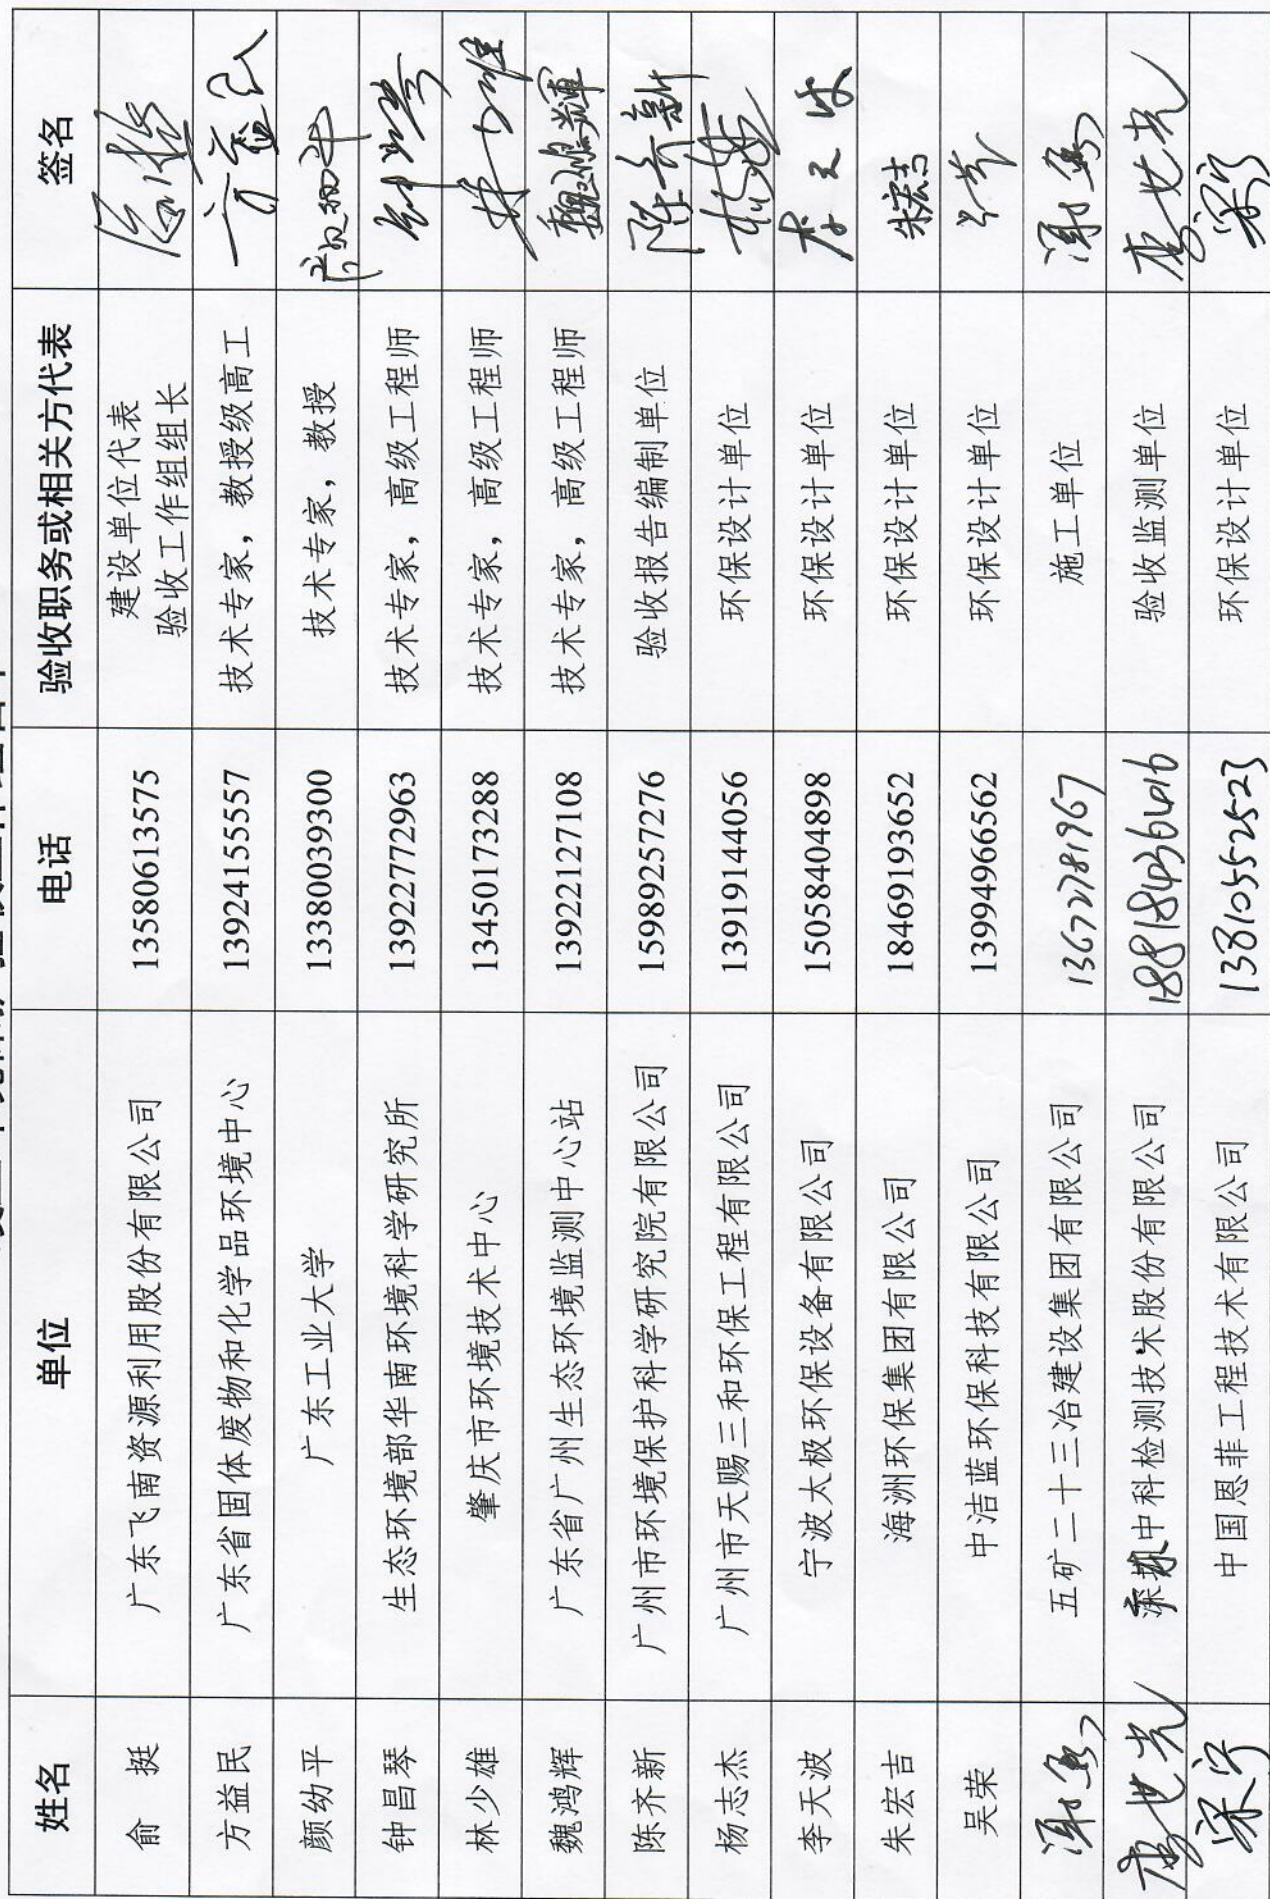 姓名 单位 电话 验收职务或相关方代表 签名
俞 挺 广东飞南资源利用股份有限公司 13580613575 建设单位代表
验收工作组组长
方益民 广东省固体废物和化学品环境中心 13924155557 技术专家，教授级高工 方益民
颜幼平 广东工业大学 13380039300 技术专家，教授
钟昌琴 生态环境部华南环境科学研究所 13922772963 技术专家，高级工程师 钟昌琴
林少雄 肇庆市环境技术中心 13450173288 技术专家，高级工程师 林少雄
魏鸿辉 广东省广州生态环境监测中心站 13922127108 技术专家，高级工程师 魏鸿輝
陈齐新 广州市环境保护科学研究院有限公司 15989257276 验收报告编制单位 陈齐新
杨志杰 广州市天赐三和环保工程有限公司 13919144056 环保设计单位
李天波 宁波太极环保设备有限公司 15058404898 环保设计单位 李天波
朱宏吉 海洲环保集团有限公司 18469193652 环保设计单位 朱宏吉
吴荣 中洁蓝环保科技有限公司 13994966562 环保设计单位
五矿二十三冶建设集团有限公司 13672781967 施工单位
中科检测技术股份有限公司 验收监测单位
中国恩菲工程技术有限公司 13810552523 环保设计单位